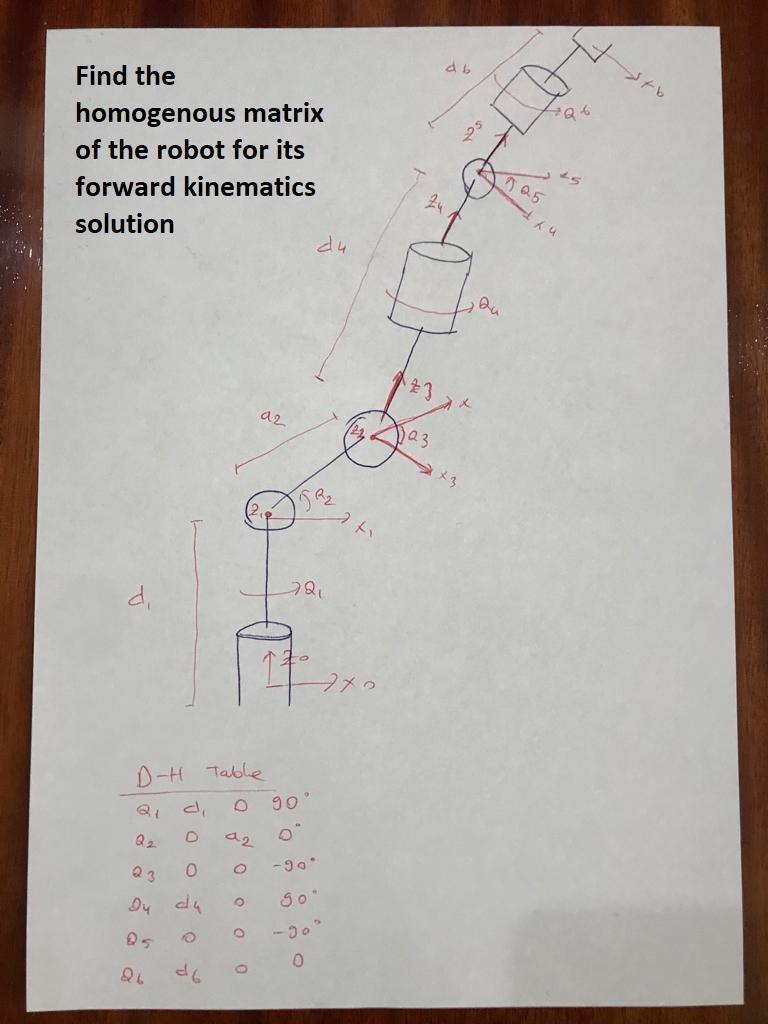 Find the
homogenous matrix
of the robot for its
forward kinematics
solution
d6
x6
Q6
Z5
x5
Q5
x4
Z4
d4
Q4
Z3
x
a2
Z2
Q3
x3
Q2
Z1
x1
d1
Q1
Z0
x0
D-H Table
Q1 d1 0 90°
Q2 0 a2 0°
Q3 0 0 -90°
Q4 d4 0 90°
Q5 0 0 -90°
Q6 d6 0 0